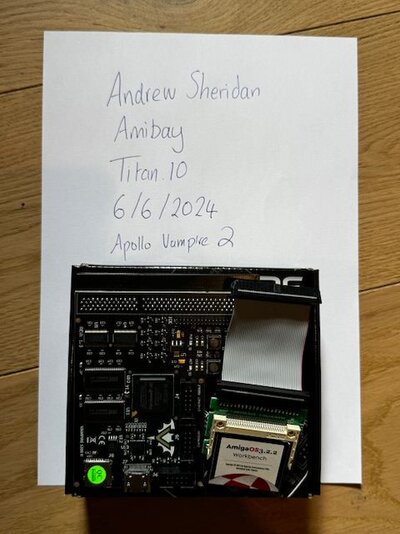 Andrew Sheridan
Amibay
Titan.10
6/6/2024
Apollo Vampire 2
AmigaOS3.2.2
Workbench